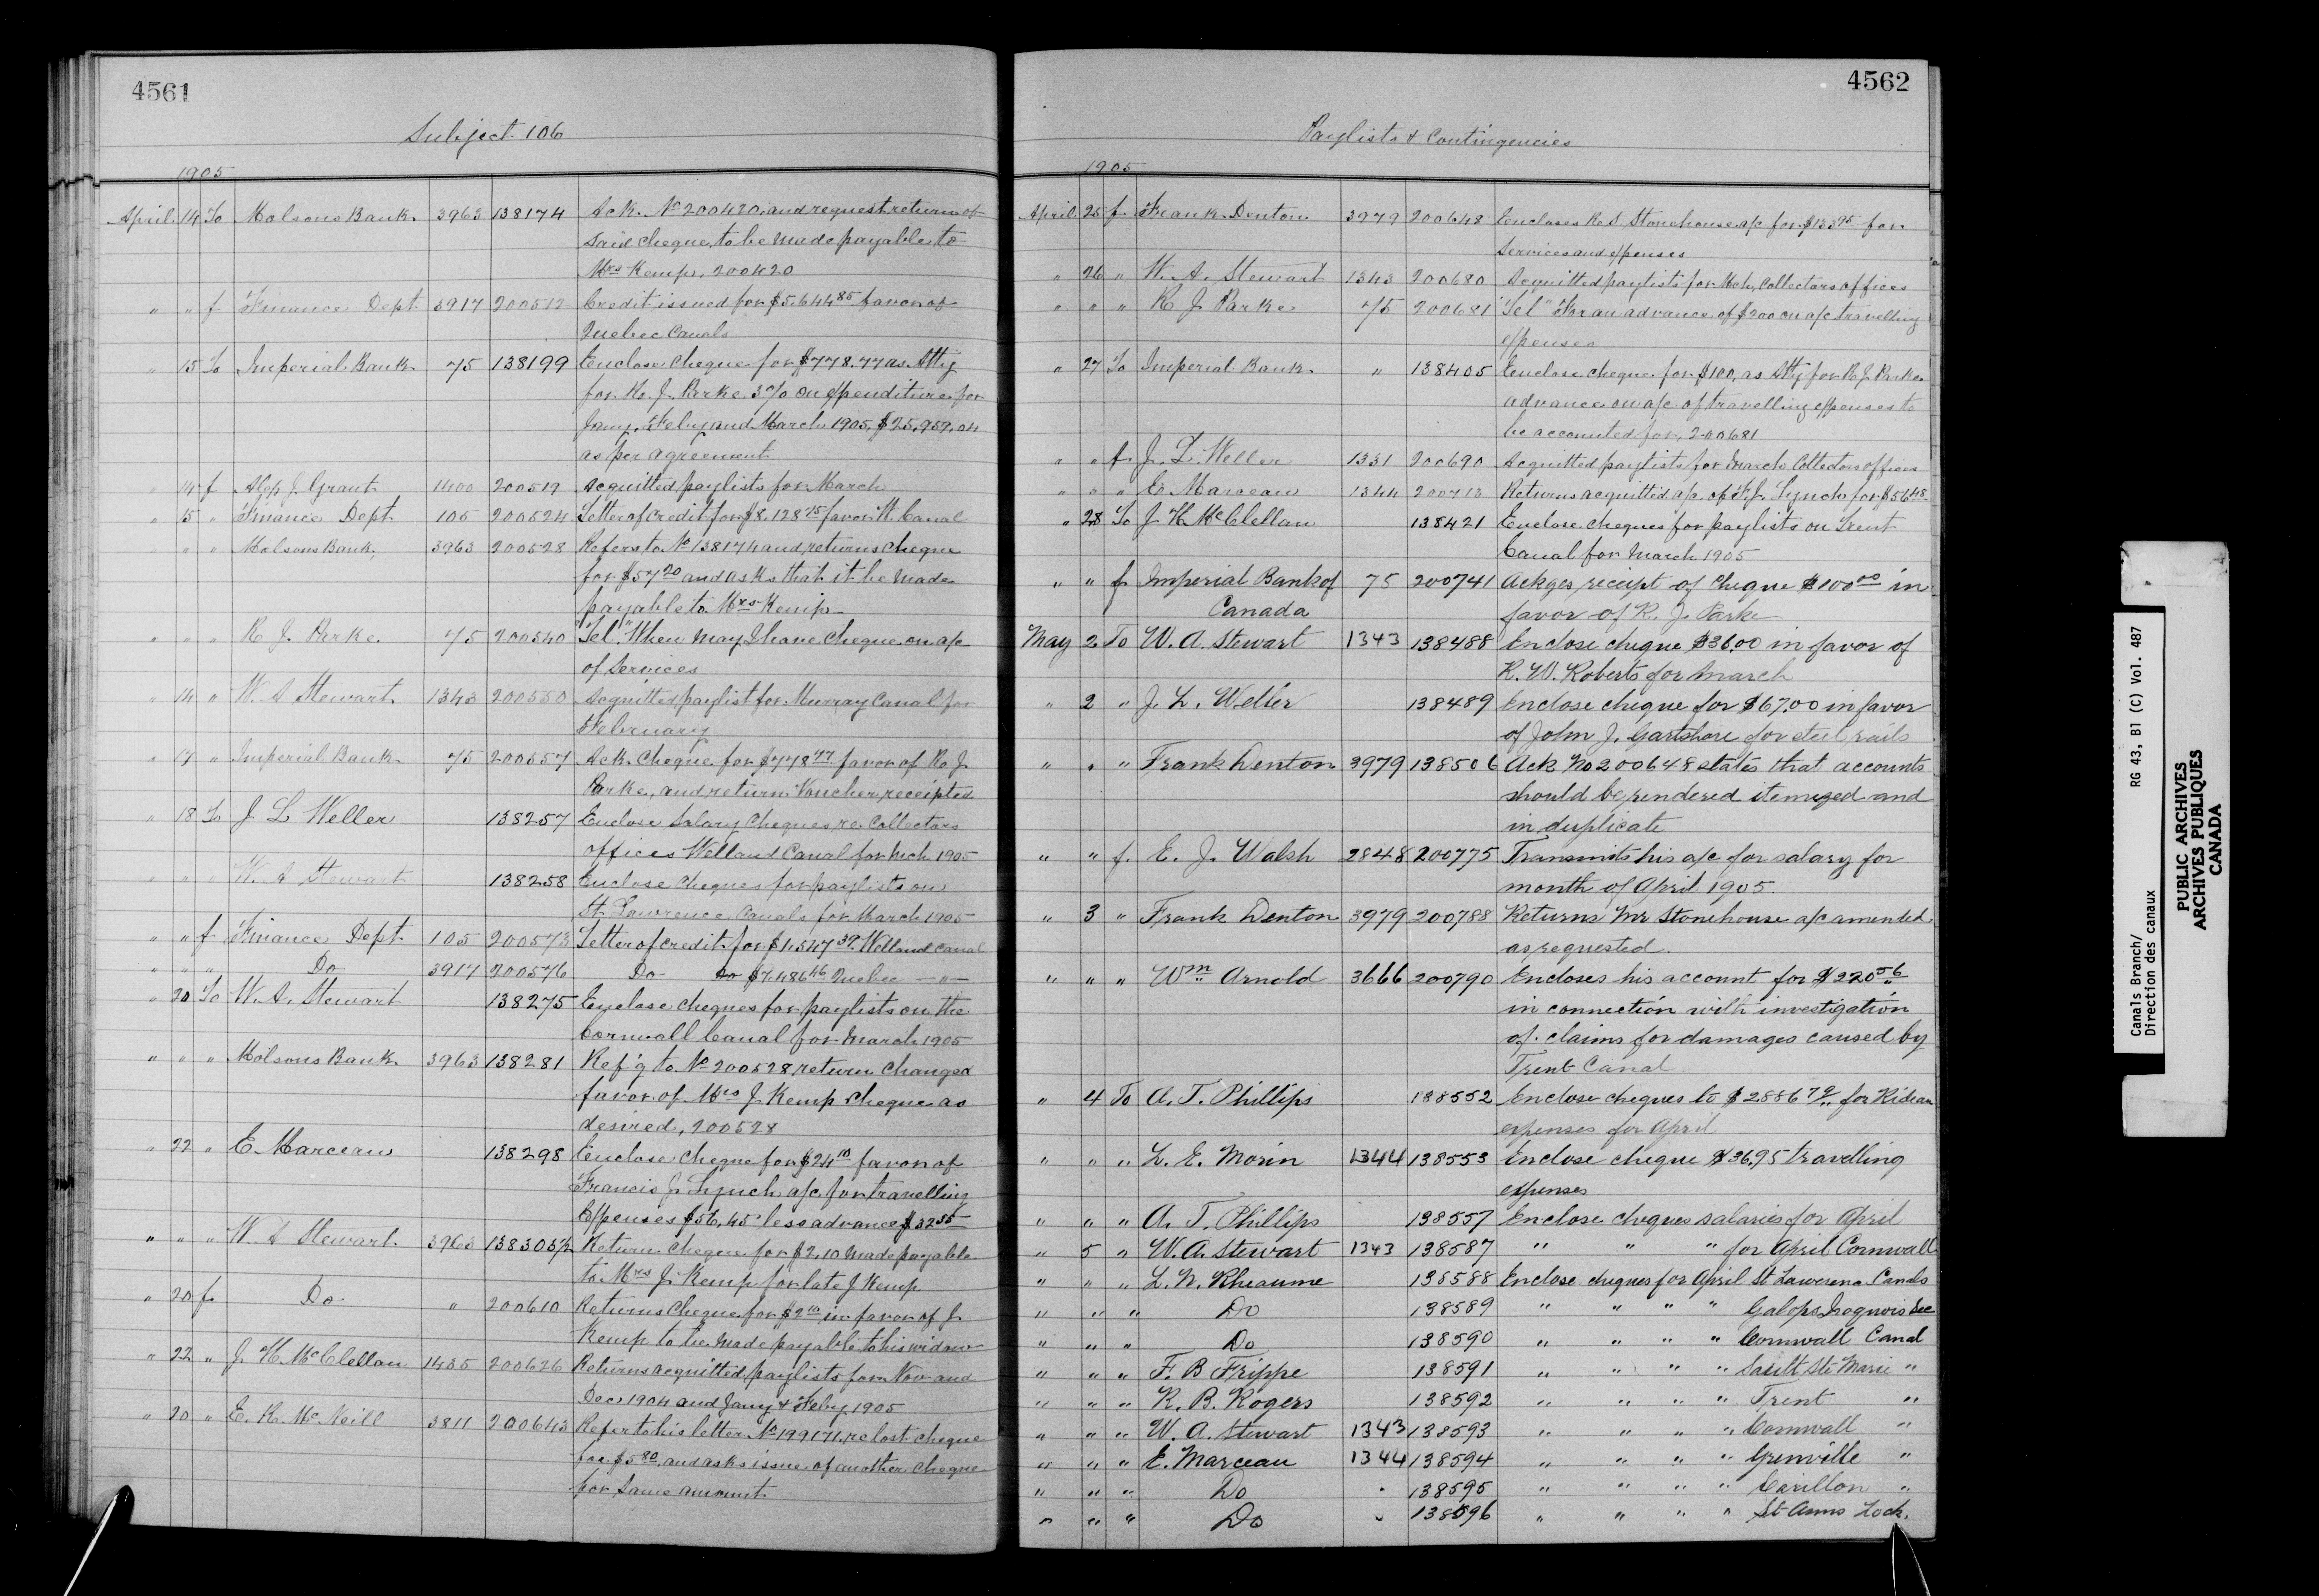 4561
Subject 106
1905
April 14 To Molsons Bank. 3963 138174 Ack. No 200420, and request return of
said cheque, to be made payable to
Mrs Kemp, 200420
" " f Finance Dept. 3917 200512 Credit issued for $5,644 85 favor of
Quebec Canals
" 15 To Imperial Bank 75 138199 Enclose cheque for $778.77 as Atty
for R. J. Parke 3% on expenditure for
Jany, Feby and March 1905, $25,959.04
as per agreement
" 14 f Alex J. Grant 1400 200519 Acquitted paylists for March
" 15 " Finance Dept. 105 200524 Letter of credit for $8,128 75 favor W. Canal
" " " Molsons Bank, 3963 200528 Refers to No 138174 and returns cheque
for $57 20 and asks that it be made
payable to Mrs Kemp
" " " R J. Parke 75 200540 "Tel" When may I have cheque on a/c
of services
" 14 " W. A Stewart 1343 200550 Acquitted paylist for Murray Canal for
February
" 17 " Imperial Bank. 75 200557 Ack. cheque for $778 77 favor of R. J.
Parke, and return Voucher, receipted
" 18 To J L Weller 138257 Enclose Salary Cheques re. Collectors
offices Welland Canal for Mch 1905
" " " W. A Stewart 138258 Enclose cheques for paylists on
St. Lawrence Canals for March 1905
" " f Finance Dept. 105 200573 Letter of credit for $1,547 39 Welland Canal
" " " Do 3917 200576 Do Do $7,486 46 Quebec — " —
" 20 To W. A. Stewart 138275 Enclose cheques for paylists on the
Cornwall Canal for March 1905
" " " Molsons Bank 3963 138281 Ref'g to No 200528 return changed
favor of Mrs J Kemp cheque as
desired, 200528
" 22 " E. Marceau 138298 Enclose cheque for $24 10 favor of
Francis J. Lynch a/c for travelling
Expenses $56.45 less advance $32 35
" " " W. A Stewart. 3963 138303½ Return cheque for $2.10 made payable
to Mrs J. Kemp for late J Kemp
" 20 f Do " 200610 Returns cheque for $2 10 in favor of J
Kemp to be made payable to his widow
" 22 " J. H. McClellan 1435 200626 Returns acquitted paylists for Nov and
Dec 1904 and Jany & Feby 1905
" 20 " E. R. McNeill 3811 200643 Refer to his letter No 199171, re lost cheque
for $5 80, and asks issue of another cheque
for same amount.
4562
Paylists & Contingencies
1905
April 25 f Frank Denton 3979 200648 Encloses R. S. Stonehouse a/c for $133 95 for
services and expenses
" 26 " W. A. Stewart 1343 200680 Acquitted paylists for Mch, Collectors offices
" " " R J Parke 75 200681 "Tel" For an advance of $200 on a/c travelling
expenses
" 27 To Imperial Bank. " 138405 Enclose cheque for $100, as Atty for R. J. Parke
advance on a/c of travelling expenses to
be accounted for, 200681
" " f J. L. Weller 1331 200690 Acquitted paylists for March Collectors offices
" " " E. Marceau 1344 200713 Returns acquitted a/c of F. J. Lynch for $56 45
" 28 To J H McClellan 138421 Enclose cheques for paylists on Trent
Canal for March 1905
" " f Imperial Bank of 75 200741 Ackges receipt of cheque $100 00 in
Canada favor of R. J. Parke
May 2 To W. A. Stewart 1343 138488 Enclose cheque $36.00 in favor of
R. W. Roberts for March
" 2 " J. L. Weller 138489 Enclose cheque for $67.00 in favor
of John J. Gartshore for steel rails
" " " Frank Denton 3979 138506 Ack No 200648 states that accounts
should be rendered itemized and
in duplicate
" " f. E. J. Walsh 2848 200775 Transmits his a/c for salary for
month of April 1905.
" 3 " Frank Denton 3979 200788 Returns Mr Stonehouse a/c amented
as requested.
" " " Wm Arnold 3666 200790 Encloses his account for $220 56
in connection with investigation
of claims for damages caused by
Trent Canal
" 4 To A. T. Phillips 138552 Enclose cheques to $2886 79 for Rideau
expenses for April
" " " L. E. Morin 1344 138553 Enclose cheque $36.95 travelling
expenses
" " " A. T. Phillips 138557 Enclose cheques salaries for April
" 5 " W. A. Stewart 1343 138587 " " " for April Cornwall
" " " L. N. Rheaume 138588 Enclose cheques for April St Lawerence Canals
" " " Do 138589 " " " " Galops, Iroquois Sec
" " " Do 138590 " " " " Cornwall Canal
" " " F. B Frippe 138591 " " " " Sault Ste Marie "
" " " R. B. Rogers 138592 " " " " Trent "
" " " W. A. Stewart 1343 138593 " " " " Cornwall "
" " " E. Marceau 1344 138594 " " " " Grenville "
" " " Do " 138595 " " " " Carillon "
" " " Do " 138596 " " " " St Anns Lock.
Canals Branch/ RG 43, B1 (C) Vol. 487
Direction des canaux
PUBLIC ARCHIVES
ARCHIVES PUBLIQUES
CANADA